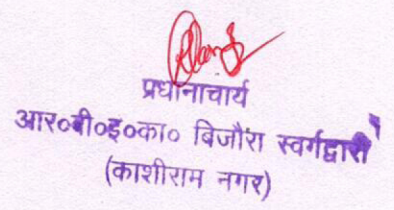 प्रधानाचार्य
आर०बी०इ०का० बिजौरा स्वर्गद्वारी
(काशीराम नगर)